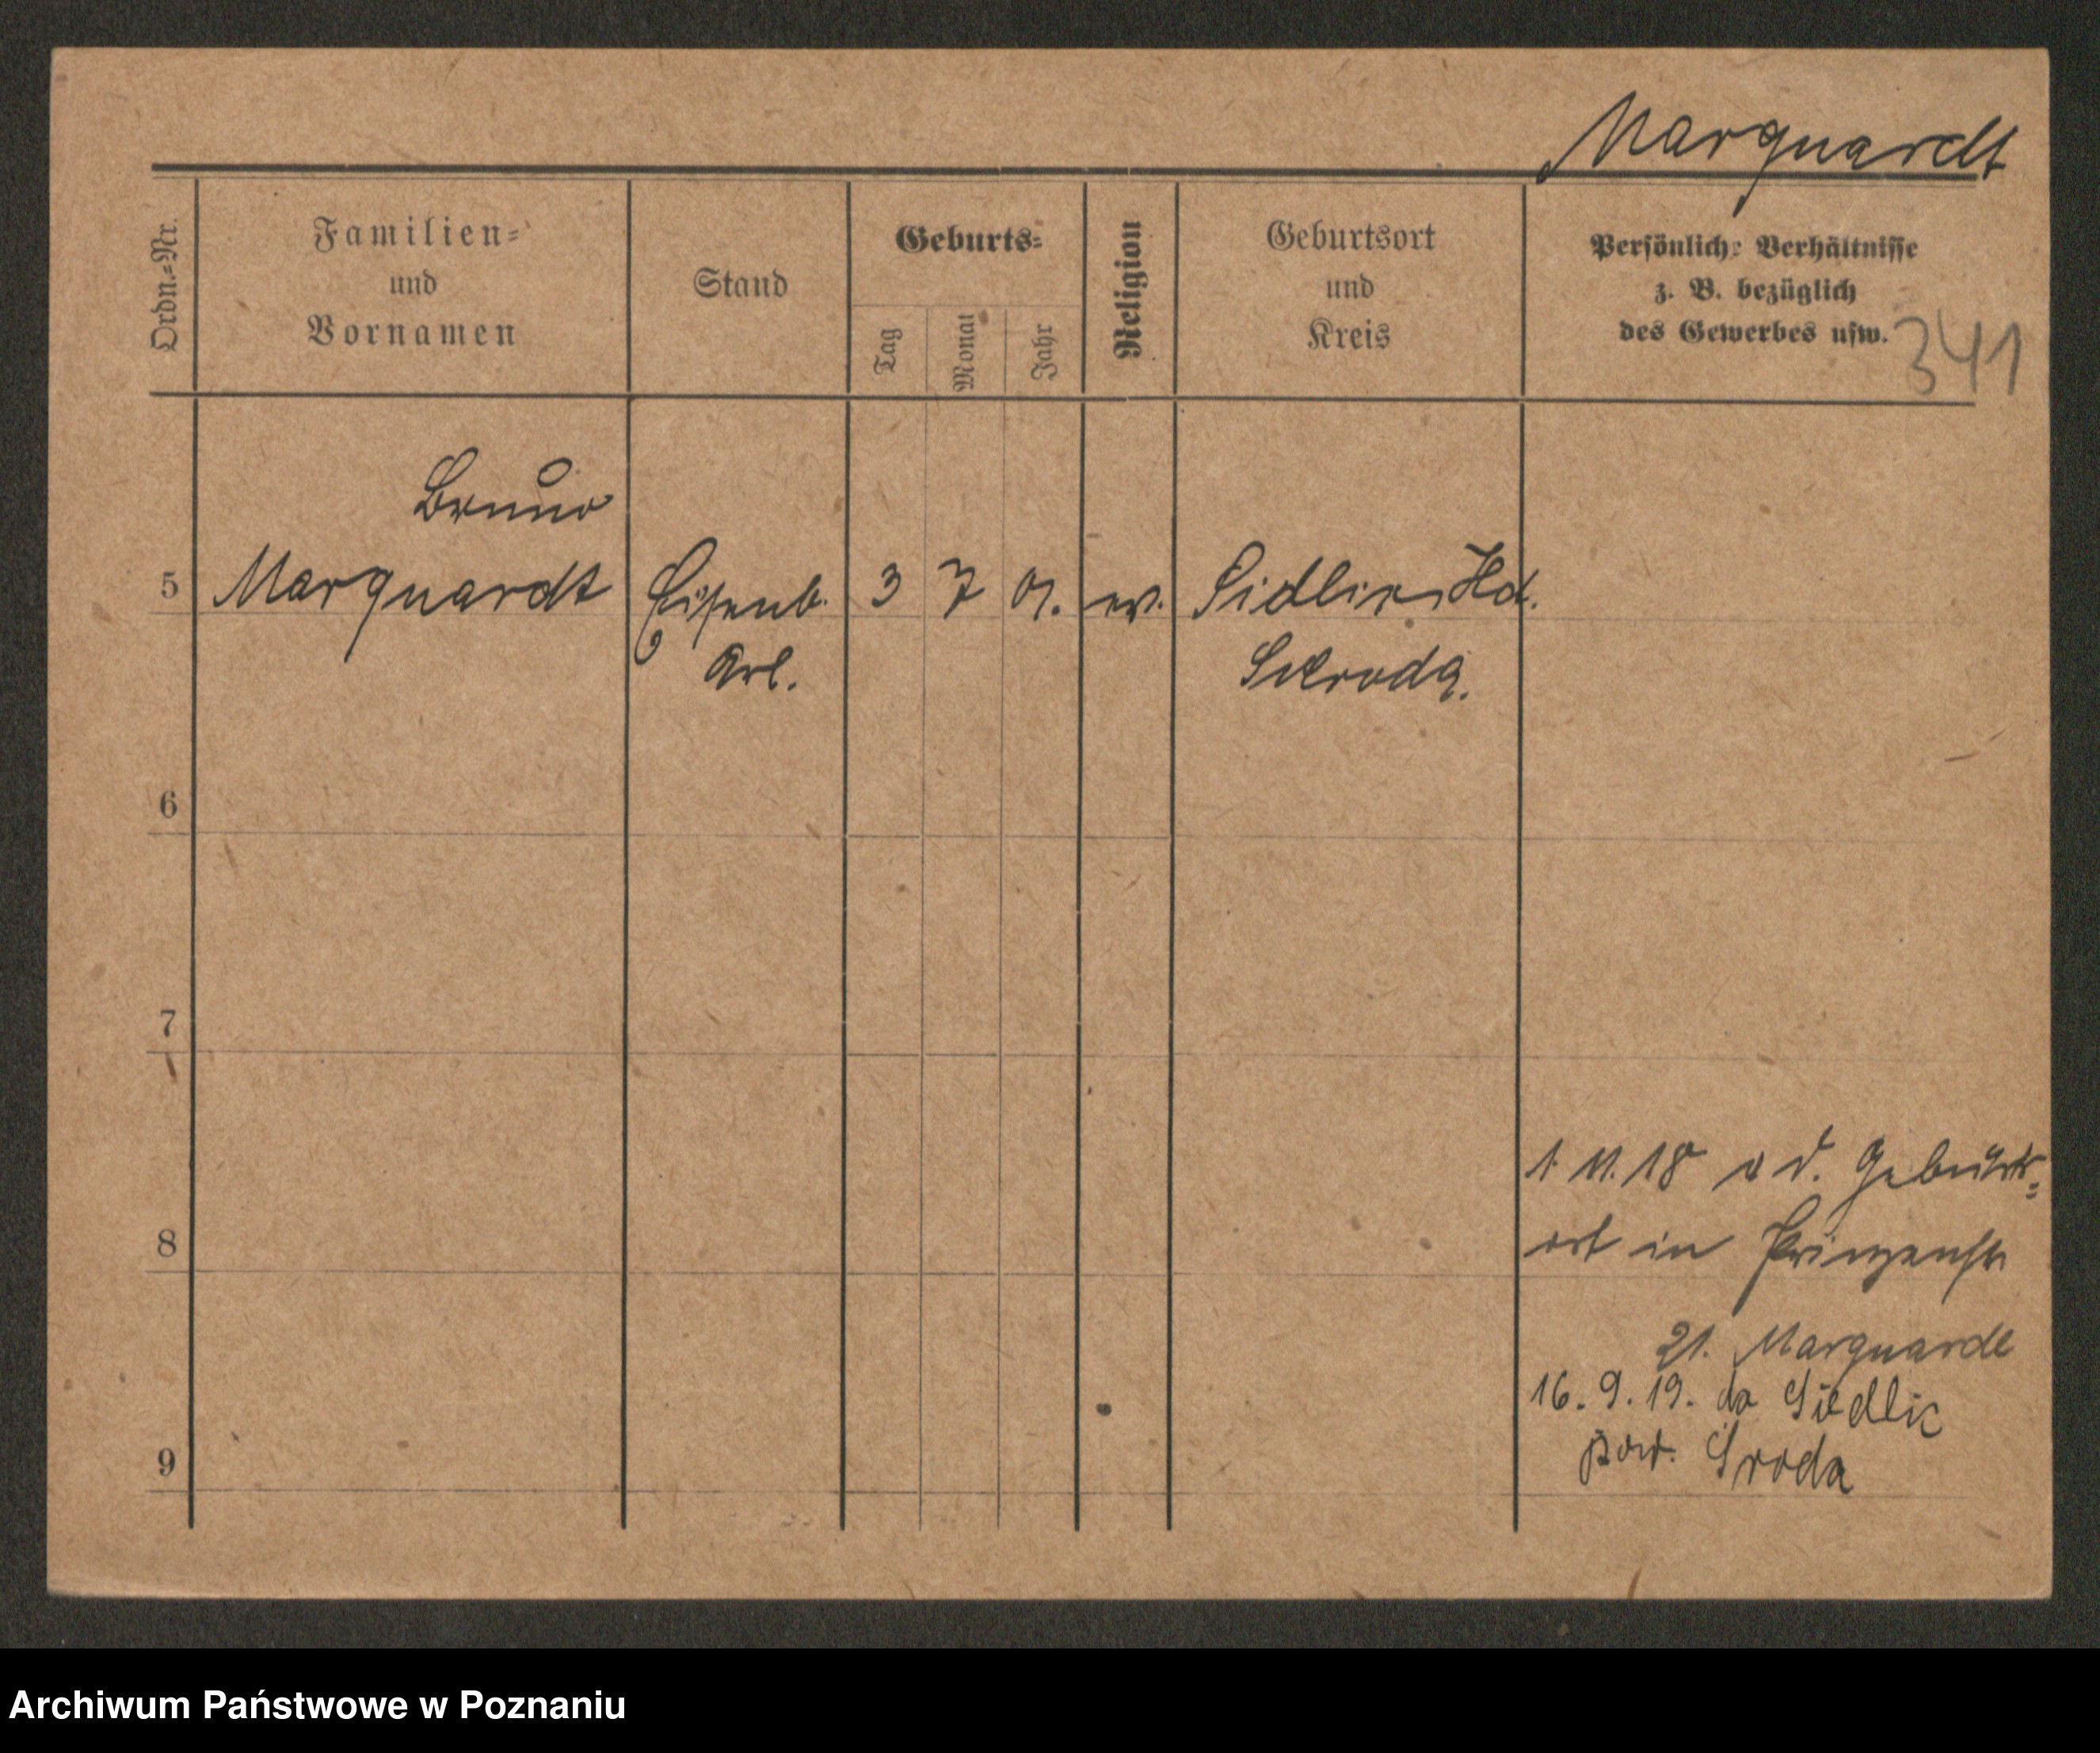 Marquardt
Ordn.=Nr.
Familien=
und
Vornamen
Stand
Geburts=
Tag
Monat
Jahr
Religion
Geburtsort
und
Kreis
Persönliche Verhältnisse
z. B. bezüglich
des Gewerbes usw.
341
Bruno
5 Marquardt Eisenb. 3 7 01. ev. Hd.
Arb. Schroda.
6
7
1. 11. 18 v d. Geburts=
8 ort in Prinzenstr
21. Marquardt
16. 9. 19. do Siedlic
9 pow. Środa
Archiwum Państwowe w Poznaniu